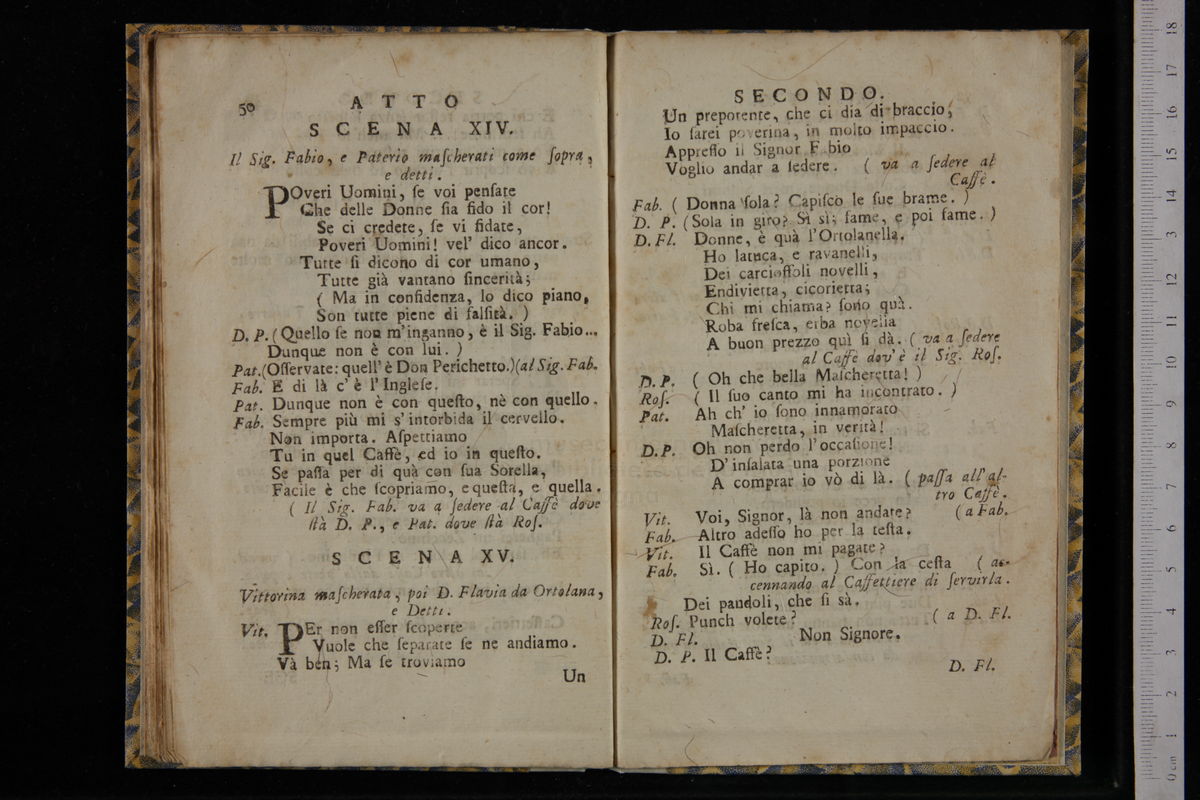 50 ATTO
SCENA XIV.
Il Sig. Fabio, e Paterio maſcherati come ſopra,
e detti.
POveri Uomini, ſe voi penſate
Che delle Donne ſia fido il cor!
Se ci credete, ſe vi fidate,
Poveri Uomini! vel' dico ancor.
Tutte ſi dicono di cor umano,
Tutte già vantano ſincerità;
( Ma in confidenza, lo dico piano,
Son tutte piene di falſità. )
D. P. (Quello ſe non m'inganno, è il Sig. Fabio...
Dunque non è con lui. )
Pat. (Oſſervate: quell' è Don Perichetto.) (al Sig. Fab.
Fab. E di là c' è l' Ingleſe.
Pat. Dunque non è con queſto, nè con quello.
Fab. Sempre più mi s' intorbida il cervello.
Non importa. Aſpettiamo
Tu in quel Caffè, ed io in queſto.
Se paſſa per di quà con ſua Sorella,
Facile è che ſcopriamo, e queſta, e quella.
( Il Sig. Fab. va a ſedere al Caffè dove
ſtà D. P., e Pat. dove ſtà Roſ.
SCENA XV.
Vittorina maſcherata, poi D. Flavia da Ortolana,
e Detti.
Vit. PEr non eſſer ſcoperte
Vuole che ſeparate ſe ne andiamo.
Và ben; Ma ſe troviamo
Un
SECONDO.
Un prepotente, che ci dia di braccio,
Io ſarei poverina, in molto impaccio.
Appreſſo il Signor Fabio
Voglio andar a ſedere. ( va a ſedere al
Caffè.
Fab. ( Donna ſola? Capiſco le ſue brame. )
D. P. (Sola in giro? Sì sì; fame, e poi fame. )
D. Fl. Donne, è quà l'Ortolanella.
Ho latuca, e ravanelli,
Dei carcioffoli novelli,
Endivietta, cicorietta;
Chi mi chiama? ſono quà.
Roba freſca, erba novella
A buon prezzo quì ſi dà. ( va a ſedere
al Caffè dov'è il Sig. Roſ.
D. P. ( Oh che bella Maſcheretta! )
Roſ. ( Il ſuo canto mi ha incontrato. )
Pat. Ah ch' io ſono innamorato
Maſcheretta, in verità!
D. P. Oh non perdo l'occaſione!
D' inſalata una porzione
A comprar io vò di là. ( paſſa all' al-
tro Caffè.
Vit. Voi, Signor, là non andate? (a Fab.
Fab. Altro adeſſo ho per la teſta.
Vit. Il Caffè non mi pagate?
Fab. Sì. ( Ho capito. ) Con la ceſta ( ac-
cennando al Caffettiere di ſervirla.
Dei pandoli, che ſi sà.
Roſ. Punch volete? ( a D. Fl.
D. Fl. Non Signore.
D. P. Il Caffè?
D. Fl.